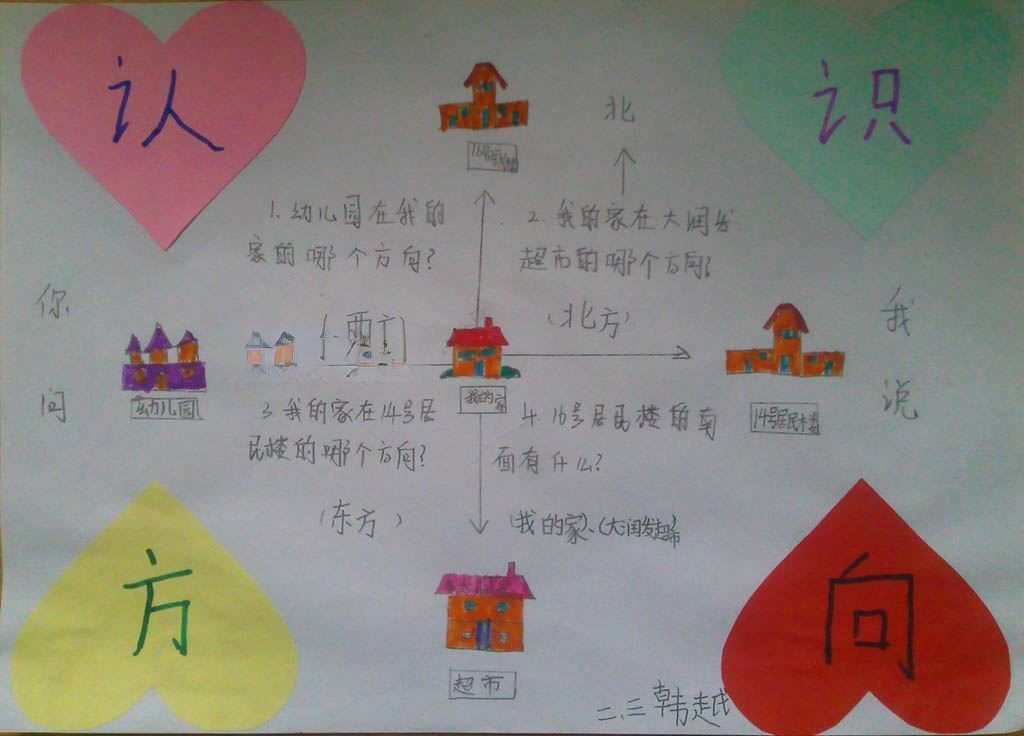 认
识
北
16号居民楼
1.幼儿园在我的
家的哪个方向?
2.我的家在大润发
超市的哪个方向?
你问
我说
(北方)
幼儿园
我的家
14号居民楼
3.我的家在14号居
民楼的哪个方向?
4.16号居民楼的南
面有什么?
(东方)
(我的家)、(大润发超市)
方
向
超市
二、三 韩越